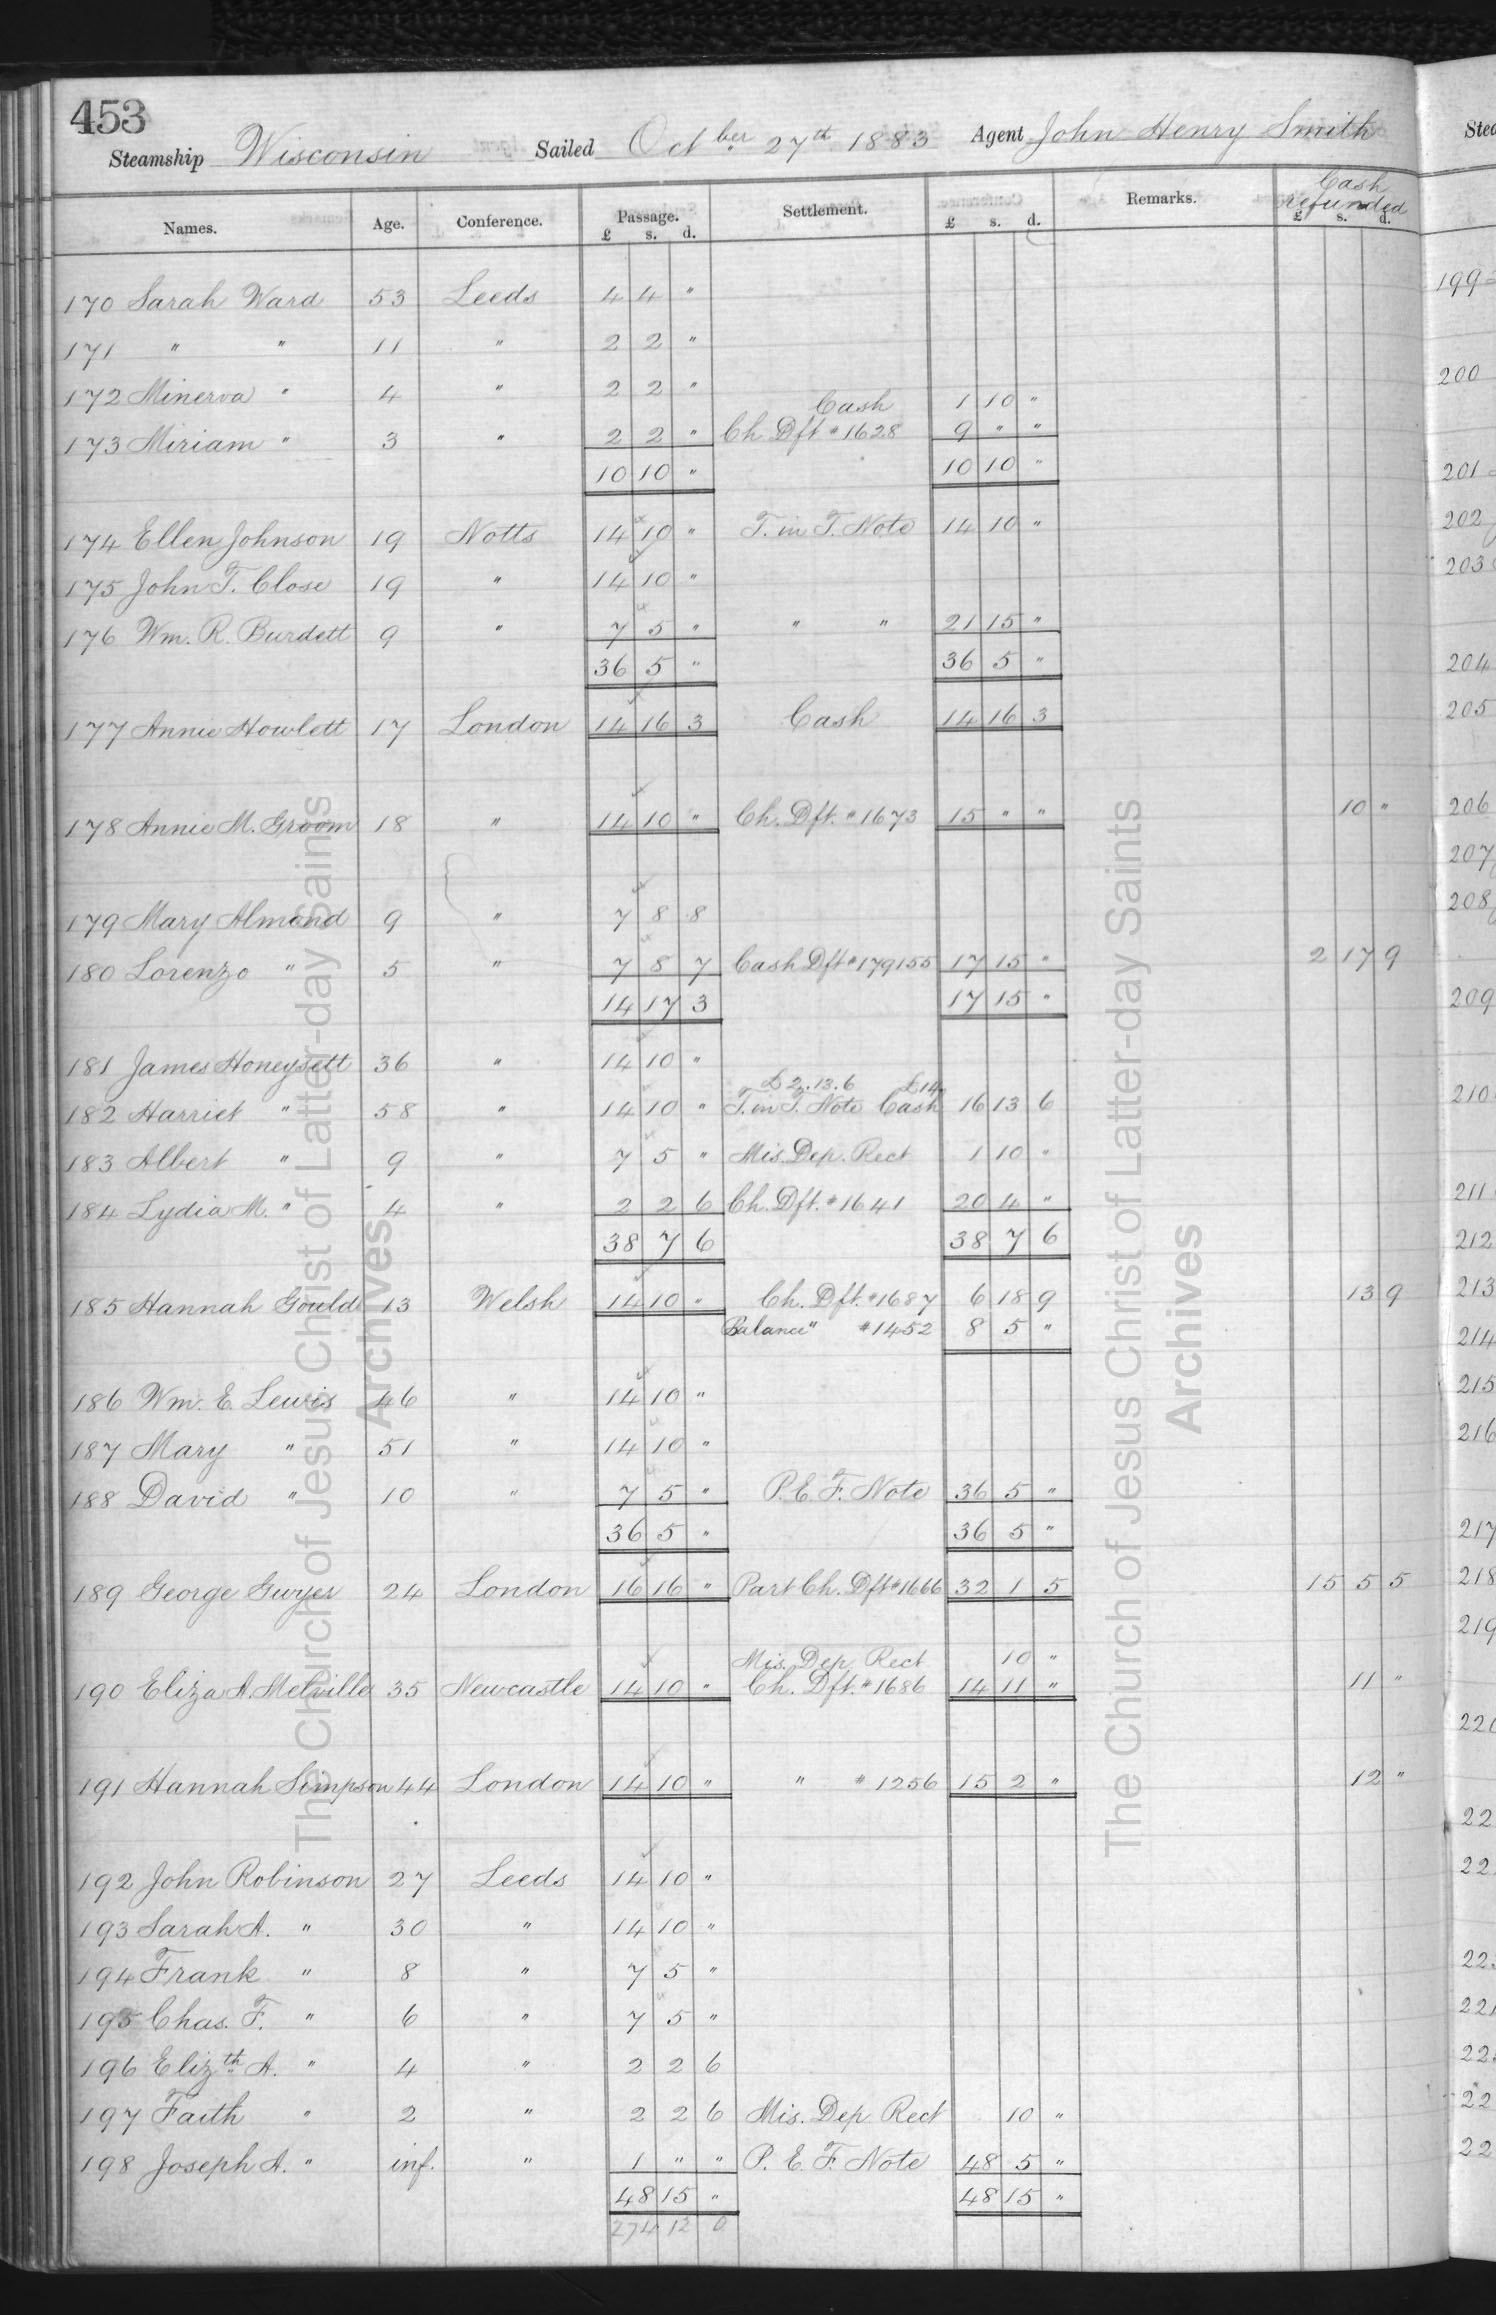 453
Steamship Wisconsin Sailed Octber 27th 1883 Agent John Henry Smith
Names. Age. Conference. Passage. £ s. d. Settlement. £ s. d. Remarks. Cash refunded £ s. d.
170 Sarah Ward 53 Leeds 4 4 "
171 " " 11 " 2 2 "
172 Minerva " 4 " 2 2 " Cash 1 10 "
173 Miriam " 3 " 2 2 " Ch. Dft # 1628 9 " "
10 10 " 10 10 "
174 Ellen Johnson 19 Notts 14 10 " T. in T. Note 14 10 "
175 John T. Close 19 " 14 10 "
176 Wm. R. Burdett 9 " 7 5 " " " 21 15 "
36 5 " 36 5 "
177 Annie Howlett 17 London 14 16 3 Cash 14 16 3
178 Annie M. Groom 18 " 14 10 " Ch. Dft. # 1673 15 " " 10 "
179 Mary Almond 9 " 7 8 8
180 Lorenzo " 5 " 7 8 7 Cash Dft # 179155 17 15 " 2 17 9
14 17 3 17 15 "
181 James Honeysett 36 " 14 10 "
£2.13.6 £14
182 Harriet " 58 " 14 10 " T. in T. Note Cash 16 13 6
183 Albert " 9 " 7 5 " Mis. Dep. Rect 1 10 "
184 Lydia M. " 4 " 2 2 6 Ch. Dft. # 1641 20 4 "
38 7 6 38 7 6
185 Hannah Gould 13 Welsh 14 10 " Ch. Dft. # 1687 6 18 9 13 9
Balance " # 1452 8 5 "
186 Wm. E. Lewis 46 " 14 10 "
187 Mary " 51 " 14 10 "
188 David " 10 " 7 5 " P. E. F. Note 36 5 "
36 5 " 36 5 "
189 George Gwyer 24 London 16 16 " Part Ch. Dft # 1666 32 1 5 15 5 5
Mis. Dep. Rect 10 "
190 Eliza A. Melville 35 Newcastle 14 10 " Ch. Dft. # 1686 14 11 " 11 "
191 Hannah Simpson 44 London 14 10 " " # 1256 15 2 " 12 "
192 John Robinson 27 Leeds 14 10 "
193 Sarah A. " 30 " 14 10 "
194 Frank " 8 " 7 5 "
195 Chas. F. " 6 " 7 5 "
196 Elizth A. " 4 " 2 2 6
197 Faith " 2 " 2 2 6 Mis. Dep. Rect 10 "
198 Joseph A. " inf. " 1 " " P. E. F. Note 48 5 "
48 15 " 48 15 "
274 12 0
The Church of Jesus Christ of Latter-day Saints
Archives
The Church of Jesus Christ of Latter-day Saints
Archives
199
200
201
202
203
204
205
206
207
208
209
210
211
212
213
214
215
216
217
218
219